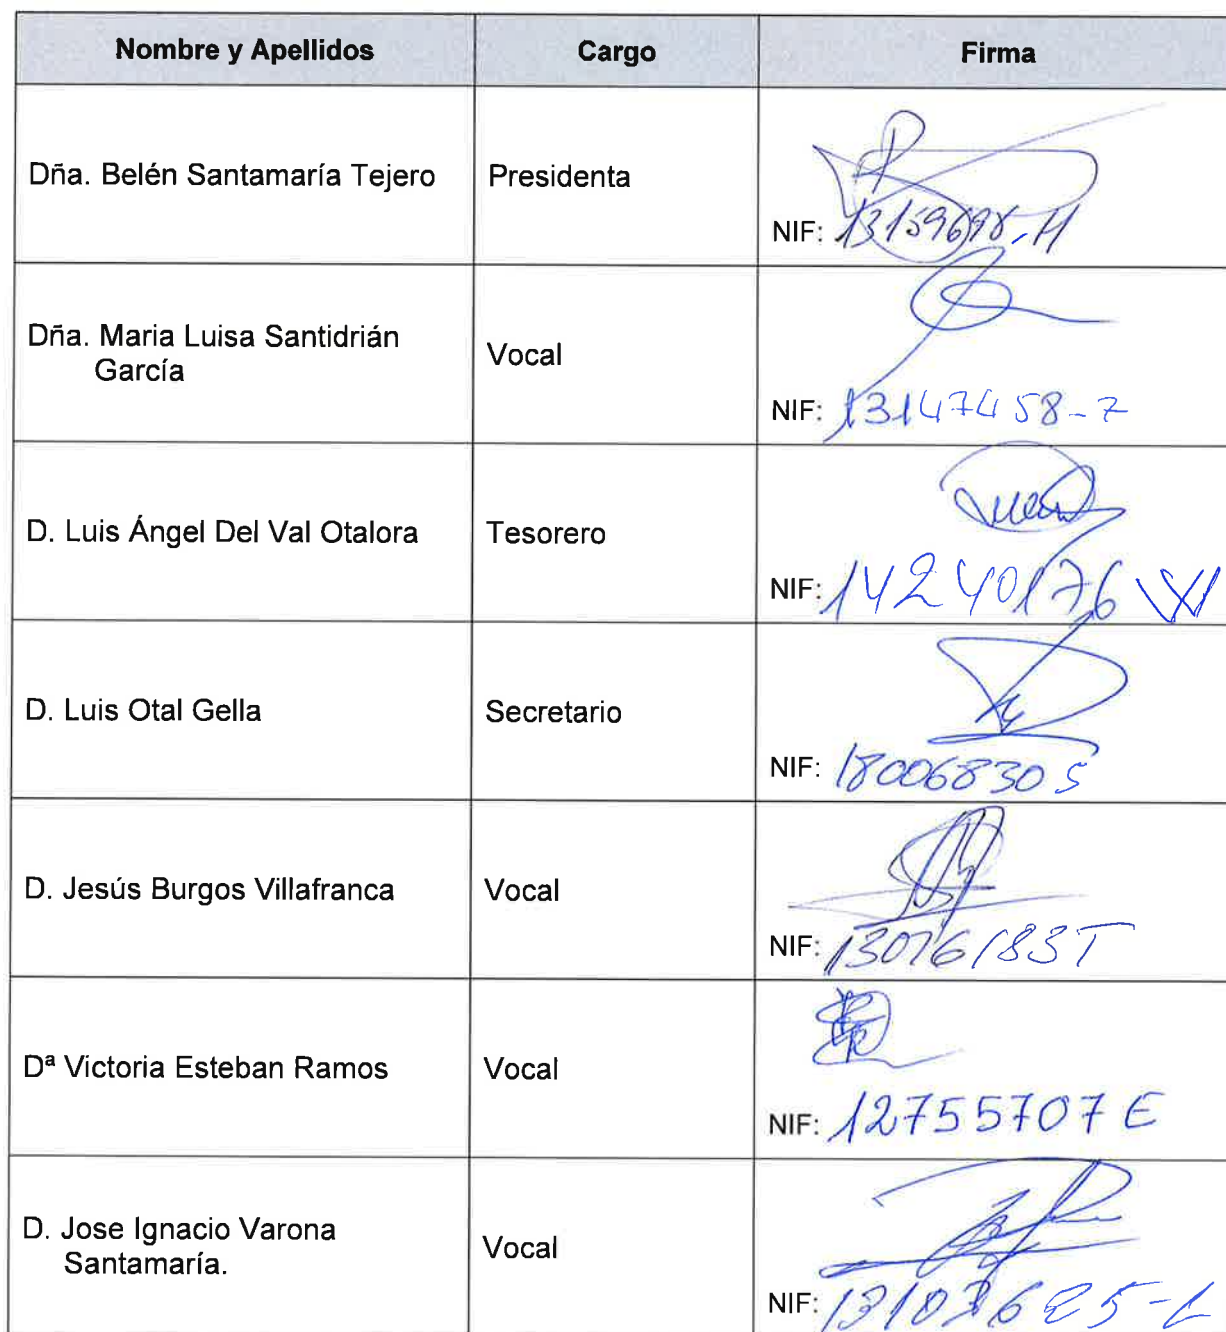 Nombre y Apellidos Cargo Firma
Dña. Belén Santamaría Tejero Presidenta
NIF: 13159698-H
Dña. Maria Luisa Santidrián
García Vocal
NIF: 13147458-Z
D. Luis Ángel Del Val Otalora Tesorero
NIF: 14240176 W
D. Luis Otal Gella Secretario
NIF: 18006830 S
D. Jesús Burgos Villafranca Vocal
NIF: 13076183T
Dª Victoria Esteban Ramos Vocal
NIF: 12755707 E
D. Jose Ignacio Varona
Santamaría. Vocal
NIF: